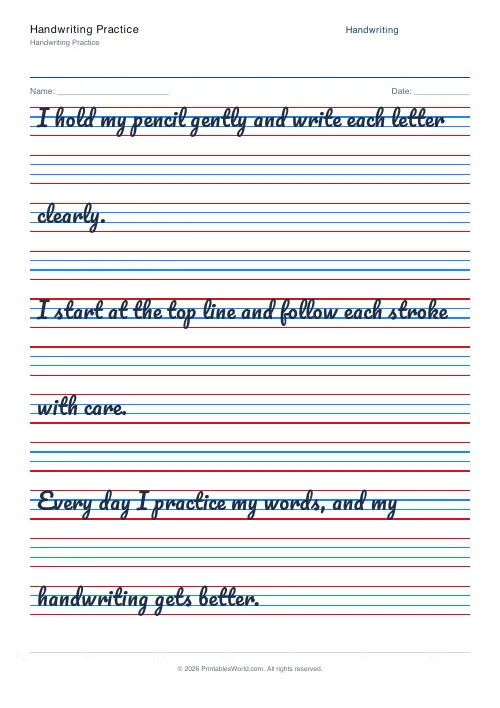 Handwriting Practice
Handwriting
Handwriting Practice
Name: ________________________ Date: ____________
I hold my pencil gently and write each letter
clearly.
I start at the top line and follow each stroke
with care.
Every day I practice my words, and my
handwriting gets better.
© 2026 PrintablesWorld.com. All rights reserved.